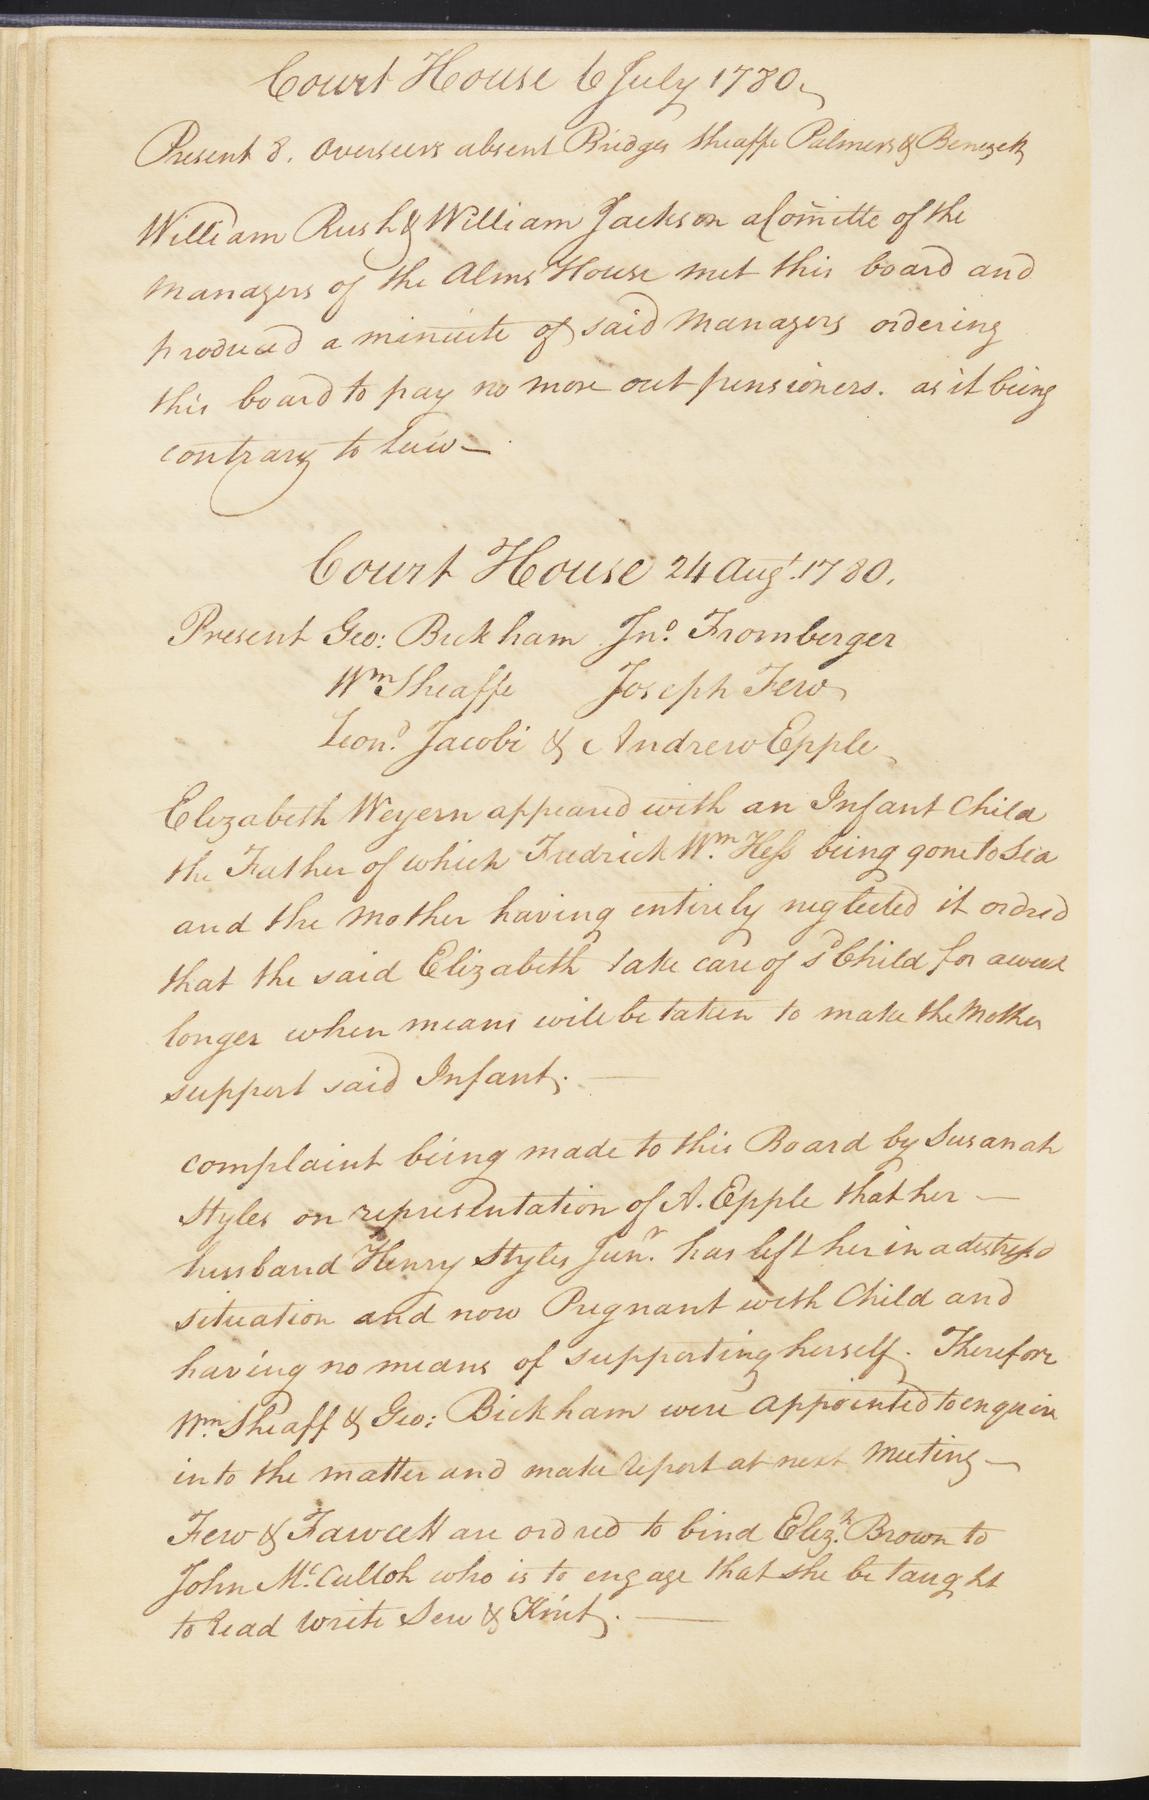 Court House 6 July 1780.
Present 8. Overseers absent Bridges Sheaffe Palmer & Benezet
William Rush & William Jackson a Com̄itte of the
Managers of the Alms House met this board and
produced a minuite of said Managers ordering
this board to pay no more out pensioners. as it being
contrary to Law—
Court House 24 Augt. 1780.
Present Geo: Bickham Jno. Fromberger
Wm Sheaffe Joseph Few
Leond. Jacobi & Andrew Epple
Elizabeth Weyern appeared with an Infant Child
the Father of which Fredrick Wm. Hess being gone to Sea
and the Mother having entirely neglected it ordred
that the said Elizabeth take care of sd Child for a week
longer when means will be taken to make the Mother
support said Infant. —
complaint being made to this Board by Susanah
Styles on representation of A. Epple that her —
husband Henry Styles Junr. has left her in a distress'd
situation and now Pregnant with Child and
having no means of supporting herself. Therefore
Wm. Sheaff & Geo: Bickham were appointed to enquire
into the matter and make report at next Meeting —
Few & Fawcett are ordred to bind Elizh. Brown to
John Mc.Culloh who is to engage that she be taught
to read write Sew & Knit. —